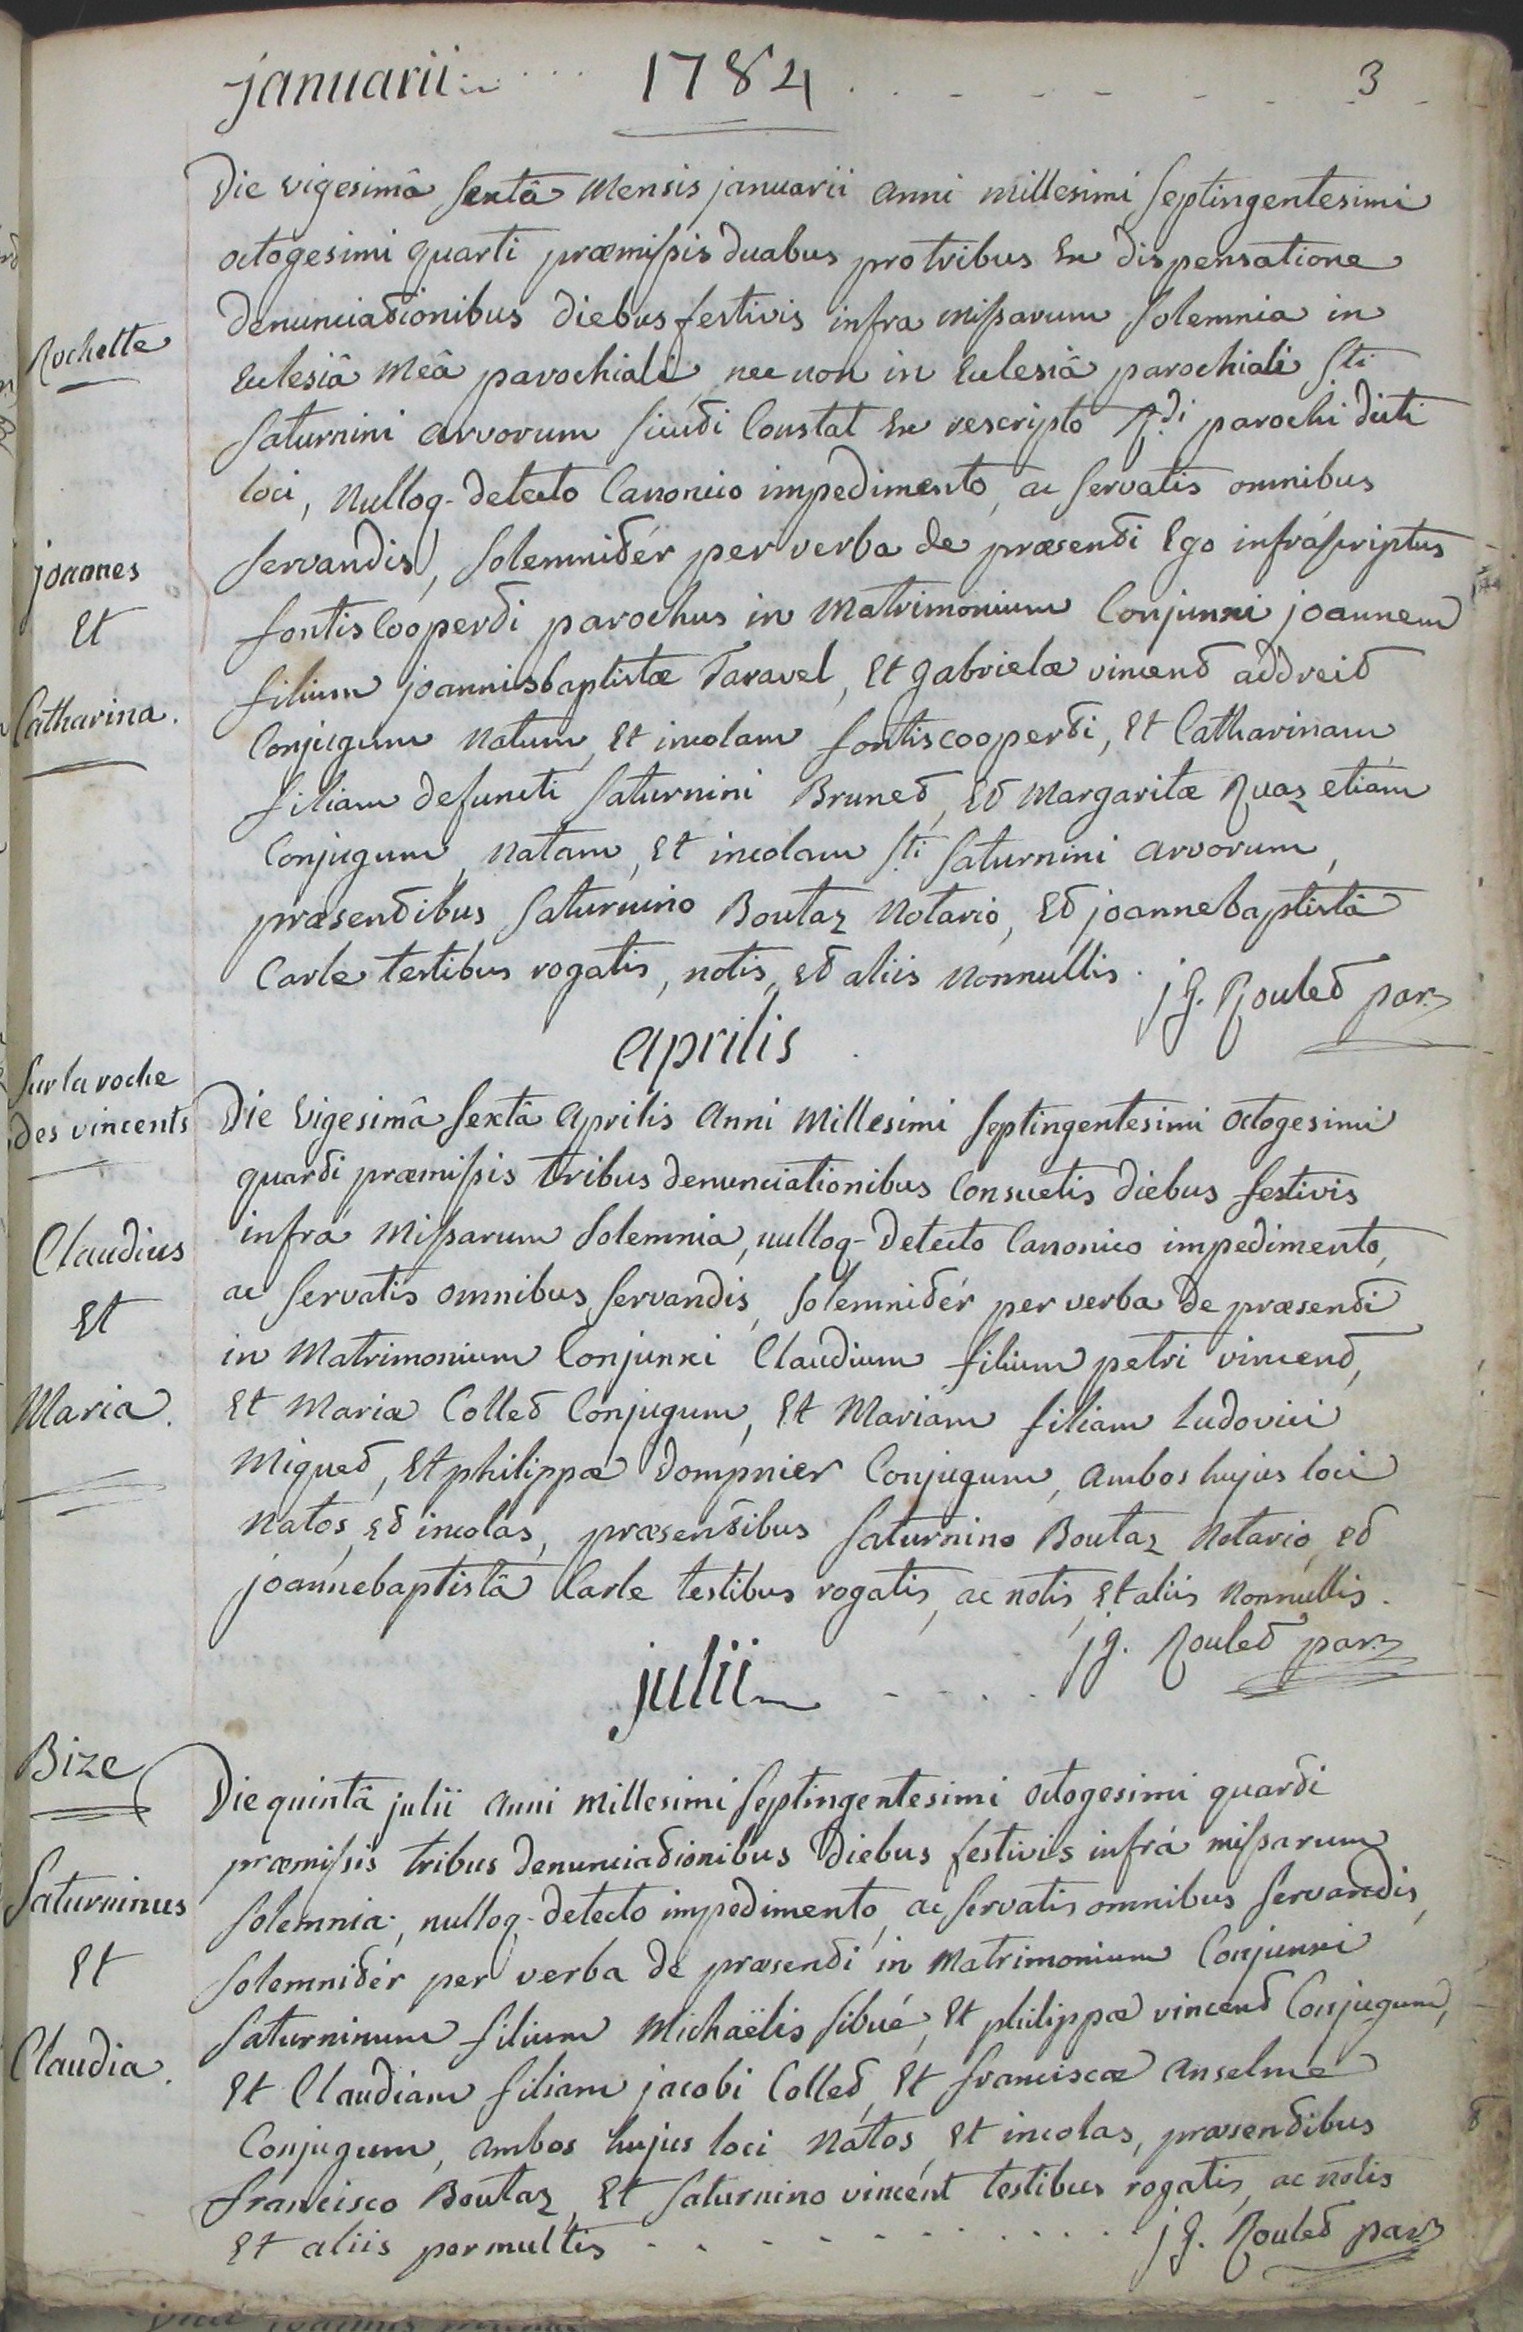 januarii 1784 3
Die vigesimâ sextâ Mensis januarii anni millesimi septingentesimi
octogesimi quarti præmissis duabus pro tribus Ex dispensatione
denunciationibus diebus festivis infra missarum solemnia in
Eclesiâ meâ parochiali nec non in Eclesiâ parochiali Sti
Rochette
saturnini arvorum sicuti Constat Ex rescripto R.di parochi dicti
loci, nulloq. detecto Canonico impedimento, ac servatis omnibus
servandis, solemnitér per verba de præsenti Ego infráscriptus
fontiscooperti parochus in Matrimonium Conjunxi joannem
joannes
Et
Catharina.
filium joannisbaptistæ Taravel, Et gabrielæ vincent addreit
Conjugum natum, Et incolam fontiscooperti, Et Catharinam
filiam defuncti saturnini Brunet, Et Margaritæ Ruaz etiam
Conjugum, natam, Et incolam Sti saturnini arvorum,
præsentibus saturnino Boutaz Notario, Et joannebaptistâ
Carle testibus rogatis, notis, Et aliis nonnullis.
j g. Roulet par.
aprilis
sur la roche
des vincents
Die vigesimâ sextâ aprilis anni Millesimi septingentesimi octogesimi
quarti præmissis tribus denunciationibus Consuetis diebus festivis
infrá missarum solemnia, nulloq. detecto Canonico impedimento,
ac servatis omnibus servandis, solemnitér per verba de præsenti
in Matrimonium Conjunxi Claudium filium petri vincent,
Claudius
Et
Maria.
Et Mariæ Collet Conjugum, Et Mariam filiam ludovici
Miquet, Et philippæ Dompnier Conjugum, ambos hujus loci
natos, Et incolas, præsentibus saturnino Boutaz Notario, Et
joannebaptistâ Carle testibus rogatis, ac notis, Et aliis nonnullis.
j g. Roulet par.
julii
Bize
Die quintâ julii anni millesimi septingentesimi octogesimi quarti
præmissis tribus denunciationibus diebus festivis infrá missarum
solemnia, nulloq. detecto impedimento, ac servatis omnibus servandis,
solemnitér per verba de præsenti in Matrimonium Conjunxi
Saturninus
Et
Claudia.
saturninum filium Michaëlis sibué, Et philippæ vincent Conjugum,
Et Claudiam filiam jacobi Collet, Et franciscæ anselme
Conjugum, ambos hujus loci natos, Et incolas, præsentibus
francisco Boutaz, Et saturnino vincent testibus rogatis, ac notis
Et aliis permultis j g. Roulet par.